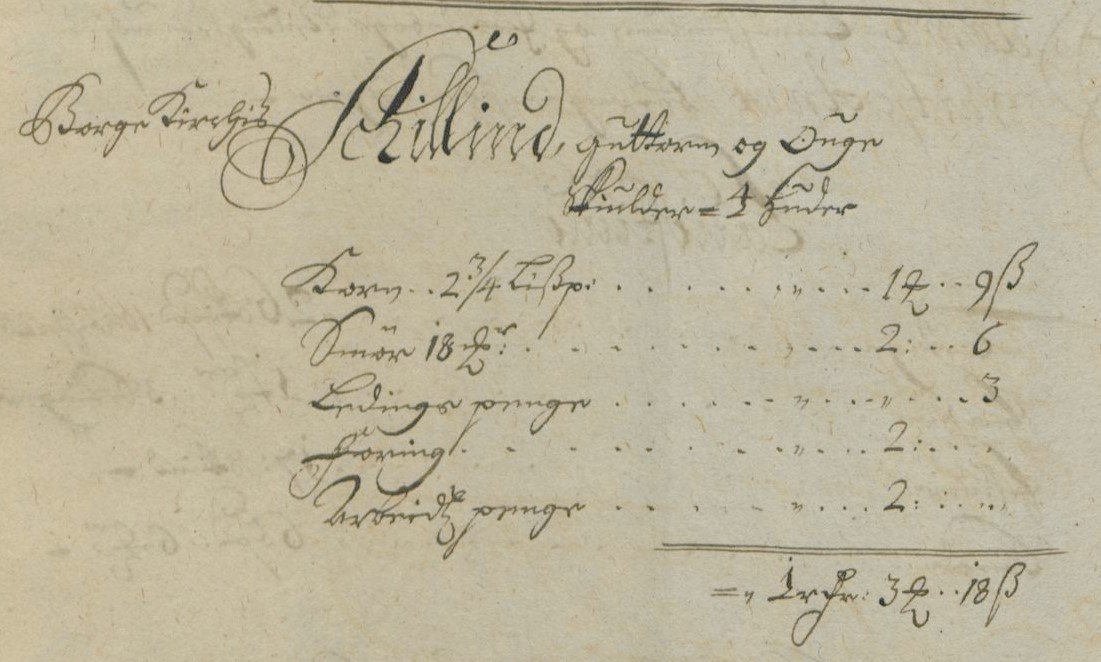 Borge Kirchis Schillind, Guttorm og Ouge
Skiulder = 1 huder
Korn .. 2 3/4 Lißp: . . . . . . . „ . . . 1 ₰ . . 9 ß
Smör 18 ₰r: . . . . . . . . . „ . . . 2: . . 6
Ledings penge . . . . . . „ . . „ . . . 3
Foring . . . . . . . . . . „ . . . 2: . . .
Arbeidtz penge . . . . . „ . . . 2: . . „
= „ 1 rdr: 3 ₰ . . 18 ß